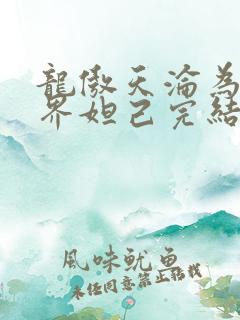 龍傲天淪為
界妲己完結
風味魷魚
未經同意禁止轉載